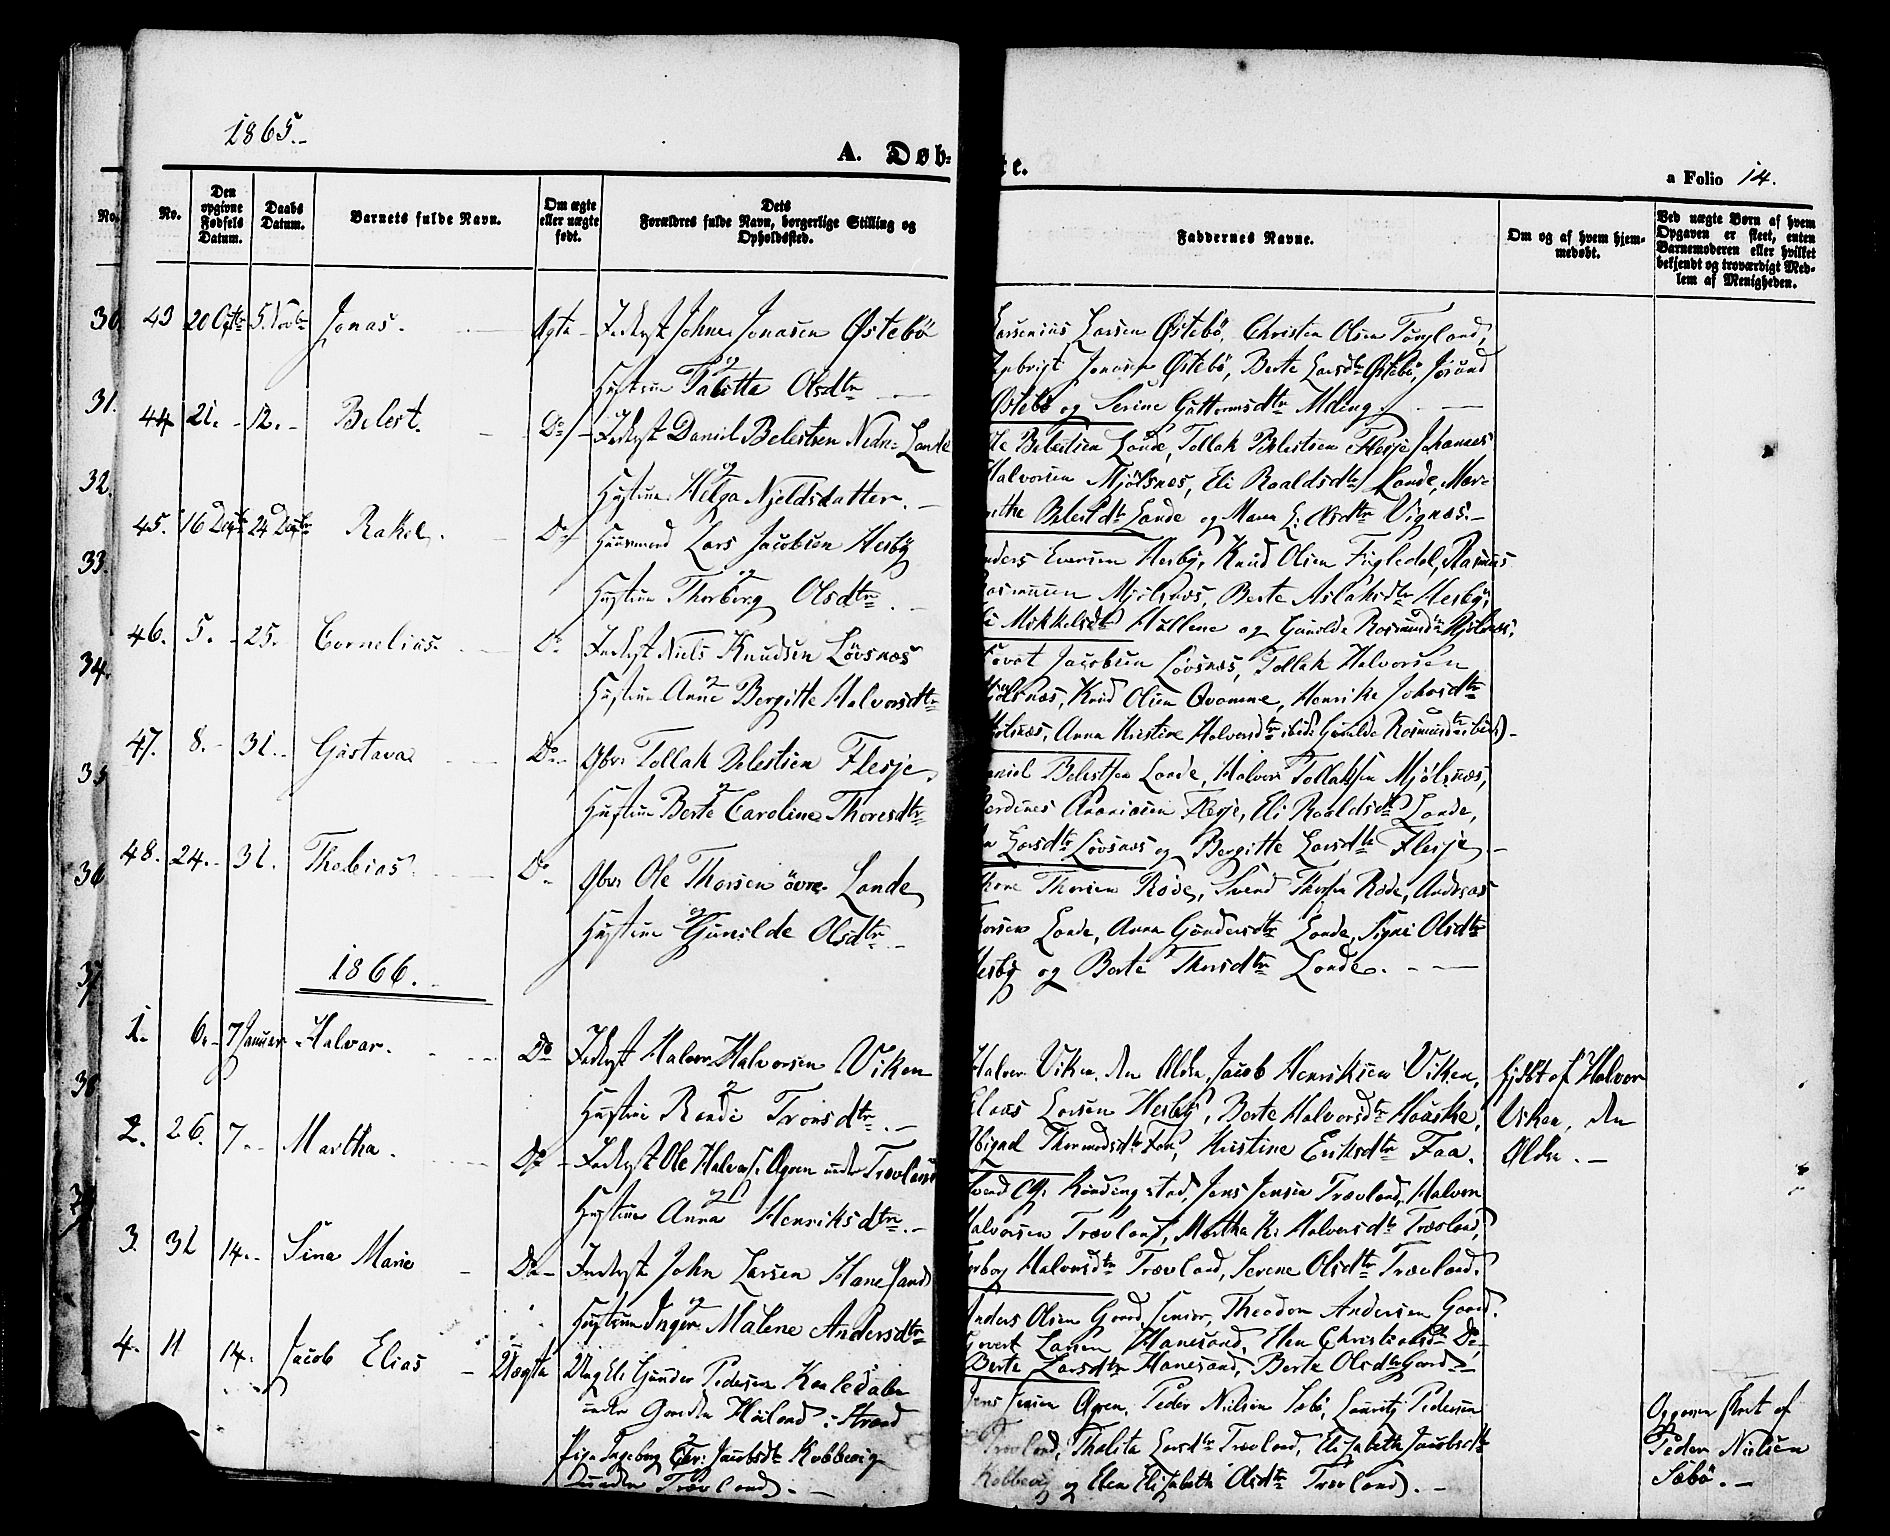 1865.-
A. Døb-
te.
a Folio 14.
No.
No.
Den opgivne Fødsels Datum.
Daabs Datum.
Barnets fulde Navn.
Om ægte eller uægte født.
Dets Forældres fulde Navn, borgerlige Stilling og Opholdssted.
Faddernes Navne.
Om og af hvem hjemmedøbt.
Ved uægte Børn af hvem Opgaven er skeet, enten Barnemoderen eller hvilket bekjendt og troværdigt Medlem af Menigheden.
30.
31.
32.
33.
34.
35
36
37
38
43 20 5. Jonas. Ægte Inderst Johnes Jonasen Østebö
og
Hustrue Talitta Olsdtr
Larsen Østebö, Christen Olsen
Jonasen Østebö, Berte Larsdtr Østebö,
Østebö og Serine Guttormsdtr
44 21. - 12. - Belest. Do Inderst Daniel Belestsen Nedr. Lande
og
Hustrue Helga Njeldsdatter. -
Belestsen Lande, Tollak Belestsen Flesje, Johannes
Halvorsen Mjölsnæs, Eli Roaldsdtr Lande, Mar-
grethe Belestdtr Lande og Maren E: Olsdtr Vignæs. -
45. 16 24 Rakel. Do Huusmand Lars Jacobsen Hesby
og
Hustrue Thorborg Olsdtr. -
Anders Eversen Hesby, Knud Olsen Fugledal, Rasmus
Rasmusen Mjölsnæs, Berte Aslaksdtr Hesby,
Mikkelsdtr Hallene og Gunilde Rasmusdtr Mjölsnæs.
46. 5. - 25. Cornelius. Do Inderst Niels Knudsen Lövsnæs
og
Hustrue Anne Bergitte Halvorsdtr
Jacobsen Lövsnæs, Tollak Halvorsen
Mjölsnæs, Knud Olsen Qvamme, Henrikke Johnsdtr
Mjölsnæs, Anna Kirstine Halvorsdtr ibid: Gunilde Rasmusdtr ibid) -
47. 8. - 31. - Gustava Do - Gbr Tollak Belestsen Flesje,
og
Hustrue Berte Caroline Thoresdtr
Daniel Belestsen Lande, Halvor Tollaksen Mjölsnæs,
Ananiasen Flesje, Eli Roaldsdtr Lande,
Larsdtr Lövsnæs og Bergitte Larsdtr Flesje -
48. 24. - 31. Thobias Do Gbr Ole Thorsen övre Lande
og
Hustrue Gunilde Olsdtr -
Thore Thorsen Rode, Svend Thorsen Rode, Andreas
Thorsen Lande, Anna Gundersdtr Lande, Signe Olsdtr
Hesby og Berte Thorsdtr Lande. -
1866. -
1. 6. - 7 Januar Halvar. Do Inderst Halvor Halvorsen Viken
og
Hustrue Randi Tronsdtr. -
Halvor Viken, den Ældre, Jacob Henriksen Viken,
Claas Larsen Hesby, Berte Halvorsdtr Haaske,
Abigael Thormodsdtr Faa, Kirstine Eriksdtr Faa.
hjdbt af Halvor
Viken, den
Ældre. -
2. 26. 7 - Martha. Do - Inderst Ole Halvors. Ögren under Trovland
og
Hustrue Anna Henriksdtr. -
Svend Chr. Rondingstad, Jens Jensen Trovland, Halvor
Halvorsen Trovland, Martha K. Halvorsdtr Trovland,
Halvorsdtr Trovland, Serene Olsdtr Trovland.
3. 31 14. - Sina Marie Do - Inderst John Larsen Hanesand
og
Hustrue Inger Malene Andersdtr
Anders Olsen Gaard, senior, Theodor Andersen Gaard.
Govert Larsen Hanesand, Christiansdtr Do,
Berte Larsdtr Hanesand, Berte Olsdtr Gaard -
4. 11 14. Jacob Elias Uægte Ung Eli Gunder Pedersen
under Gaarden Höiland i Strand
og
Pige Ingeborg Chr: Jacobsdtr Kobbevig
under Trovland). -
Jens Jensen Ögren, Peder Nielsen Sæbö, Lauritz Pedersen
Trovland, Thalita Larsdtr Trovland, Elisabeth Jacobsdtr
Kobbevig og Elen Elisabeth Olsdtr Trovland). -
Opgaven skeet af
Peder Nielsen
Sæbö. -